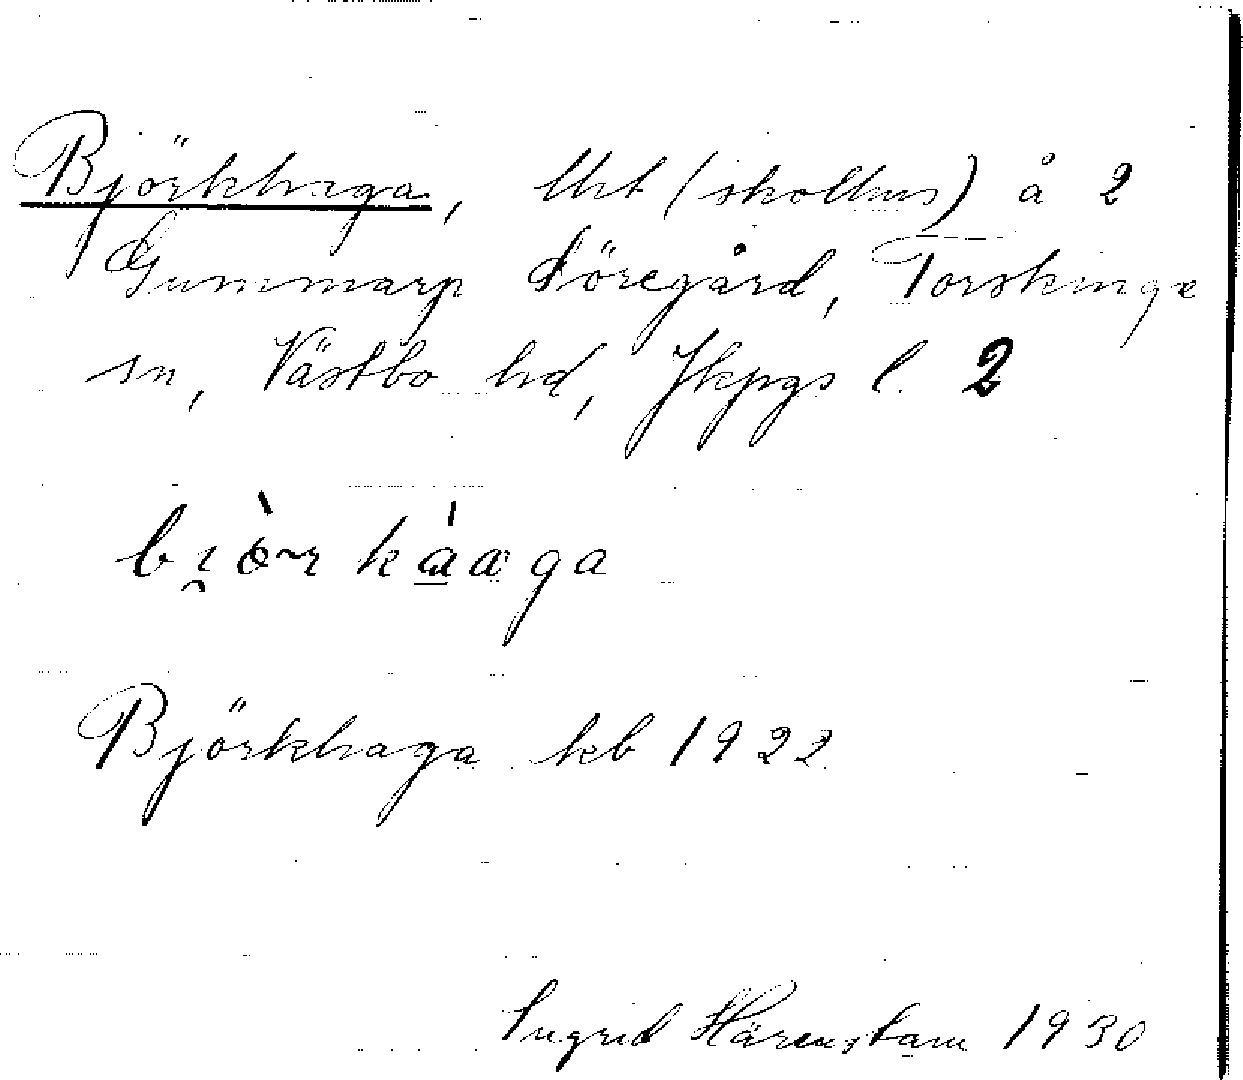 Björkhaga, lht (skolhus) å 2
Gummarp Söregård, Torskinge
sn, Västbo hd, Jkpgs l. 2
Björkhaga kb 1922
Ingrid Härenstam 1930